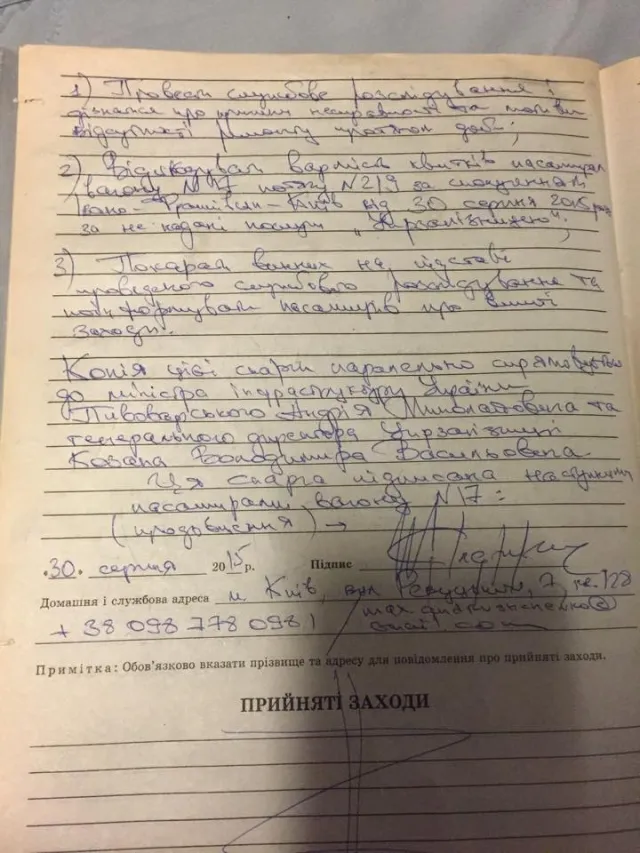 1) Провести службове розслідування і
дізнатися про причини несправності та мотиви
відсутності ремонту протягом доби;
2) Відшкодувати вартість квитків пасажирам
вагону №17 потягу №219 за сполученням
Івано-Франківськ-Київ від 30 серпня 2015 року
за не надані послуги „Укрзалізницею";
3) Покарати винних на підставі
проведеного службового розслідування та
поінформувати пасажирів про вжиті
заходи.
Копія цієї скарги паралельно спрямовується
до міністра інфраструктури України
Пивоварського Андрія Миколайовича та
генерального директора Укрзалізниці
Козака Володимира Васильовича.
Ця скарга підписана наступними
пасажирами вагону №17:
(продовження) →
„30" серпня 2015 р. Підпис
Домашня і службова адреса м. Київ, вул. 7, кв. 128
+38 098 778 0981
Примітка: Обов'язково вказати прізвище та адресу для повідомлення про прийняті заходи.
ПРИЙНЯТІ ЗАХОДИ